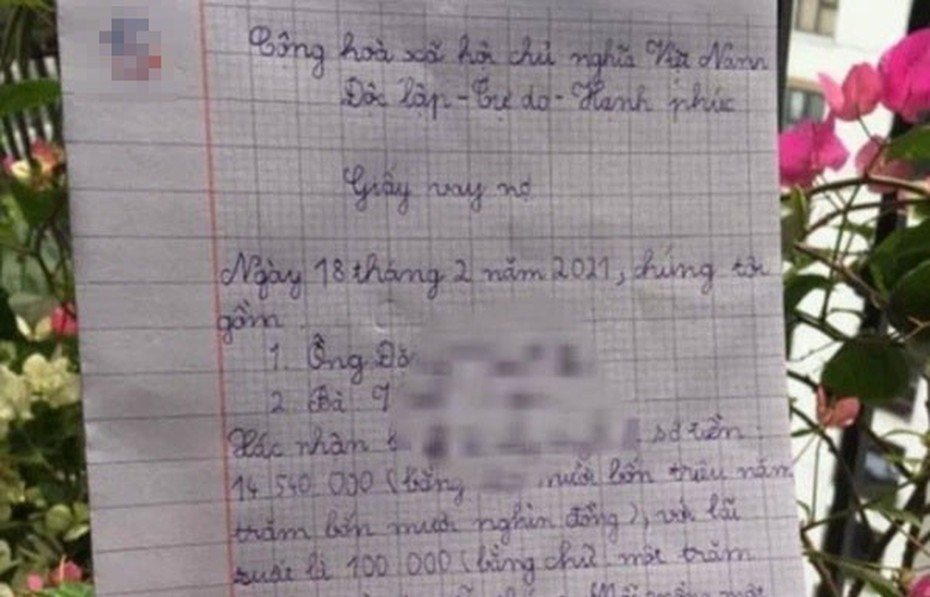 Cộng hoà xã hội chủ nghĩa Việt Nam
Độc lập - Tự do - Hạnh phúc
Giấy vay nợ
Ngày 18 tháng 2 năm 2021, chúng tôi
gồm
1. Ông Đỗ
2. Bà
Xác nhận số tiền
14 540 000 (bằng mười bốn triệu năm
trăm bốn mươi nghìn đồng), với lãi
suất là 100 000 (bằng chữ một trăm